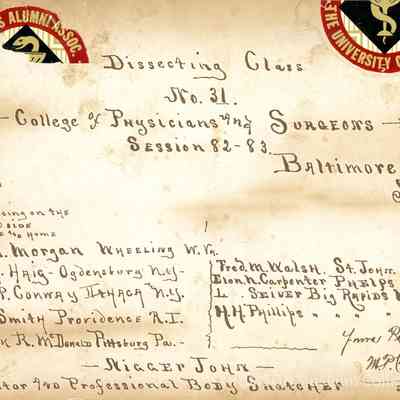 S ALUMNI ASSOC.
THE UNIVERSITY O
Dissecting Class
No. 31.
College of Physicians and Surgeons
Session 82-83.
Baltimore
on the
side
home
Morgan Wheeling W. Va.
Haig- Ogdensburg N.Y-
Conway Ithaca N.Y.
Smith Providence R.I.
R. McDonald Pittsburg Pa.-
Fred. M. Walsh. St. John.
N. Carpenter Phelps
L. Seiver Big Rapids
H H Phillips " " "
- Nigger John -
Professional Body Snatcher